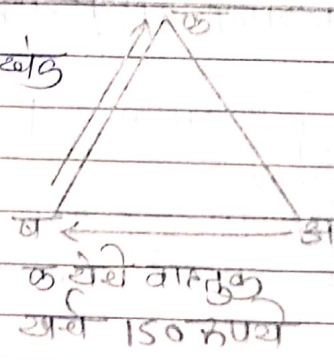 क
ब अ
क येथे वाहतुक
खर्च 150 रुपये